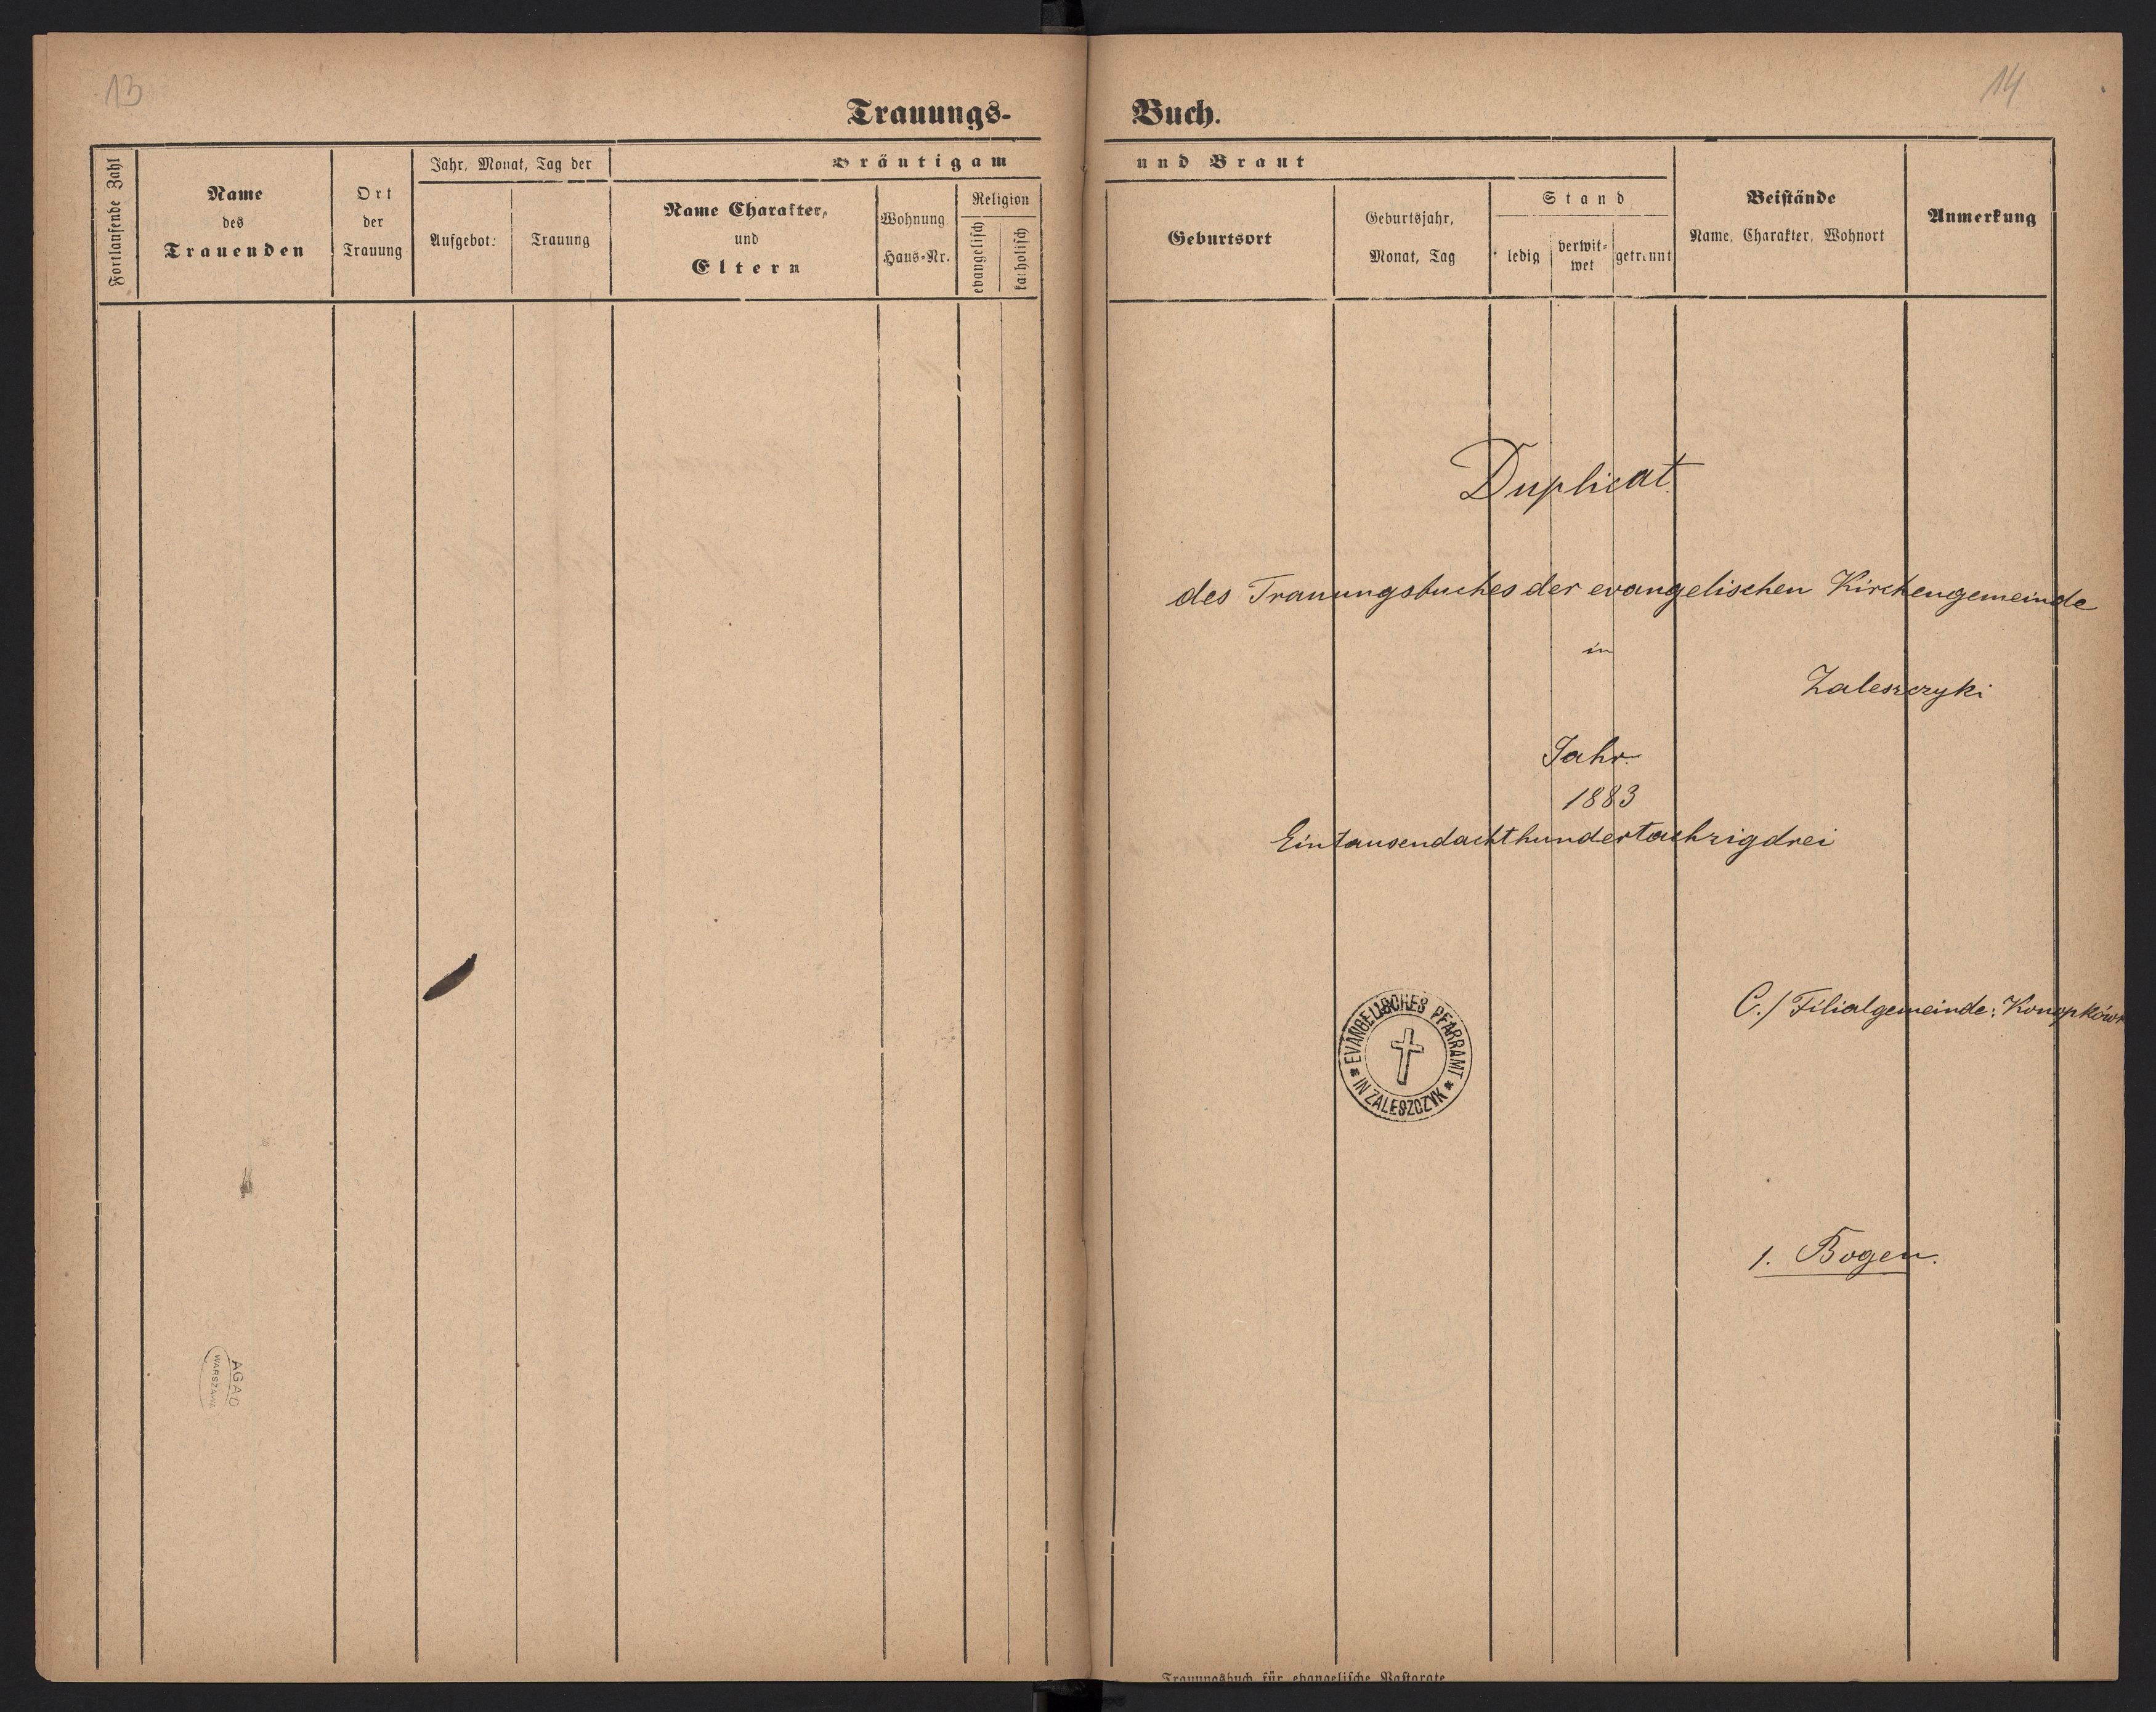 13
14
Trauungs-
Buch.
Fortlaufende Zahl
Name
des
Trauenden
Ort
der
Trauung
Jahr, Monat, Tag der
Aufgebot:
Trauung
Bräutigam
Name Charakter,
und
Eltern
Wohnung
Haus-Nr.
Religion
evangelisch
katholisch
und Braut
Geburtsort
Geburtsjahr,
Monat, Tag
Stand
ledig
verwit-
wet
getrennt
Beistände
Name, Charakter, Wohnort
Anmerkung
Duplicat.
des Trauungsbuches der evangelischen Kirchengemeinde
in
Zaleszczyki
Jahr
1883
Eintausendachthundertachzigdrei
C./ Filialgemeinde: Konopków
EVANGELISCHES PFARRAMT
* IN ZALESZCZYK *
1. Bogen.
AGAD
WARSZAWA
Trauungsbuch für evangelische Pastorate